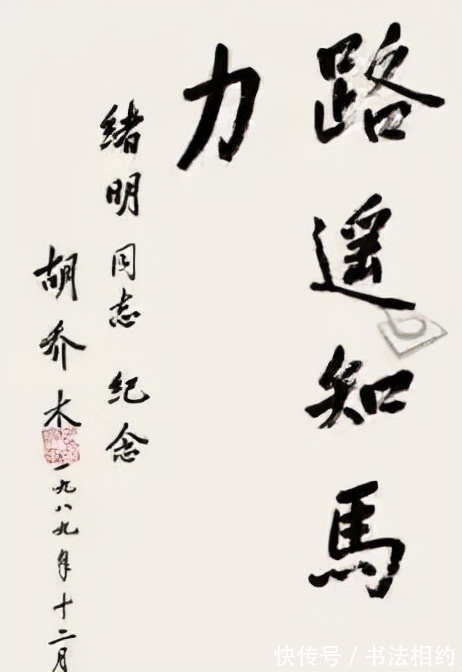 路遥知馬
力
緒明同志 纪念
胡乔木
一九八九年十二月
快传号 / 书法相约